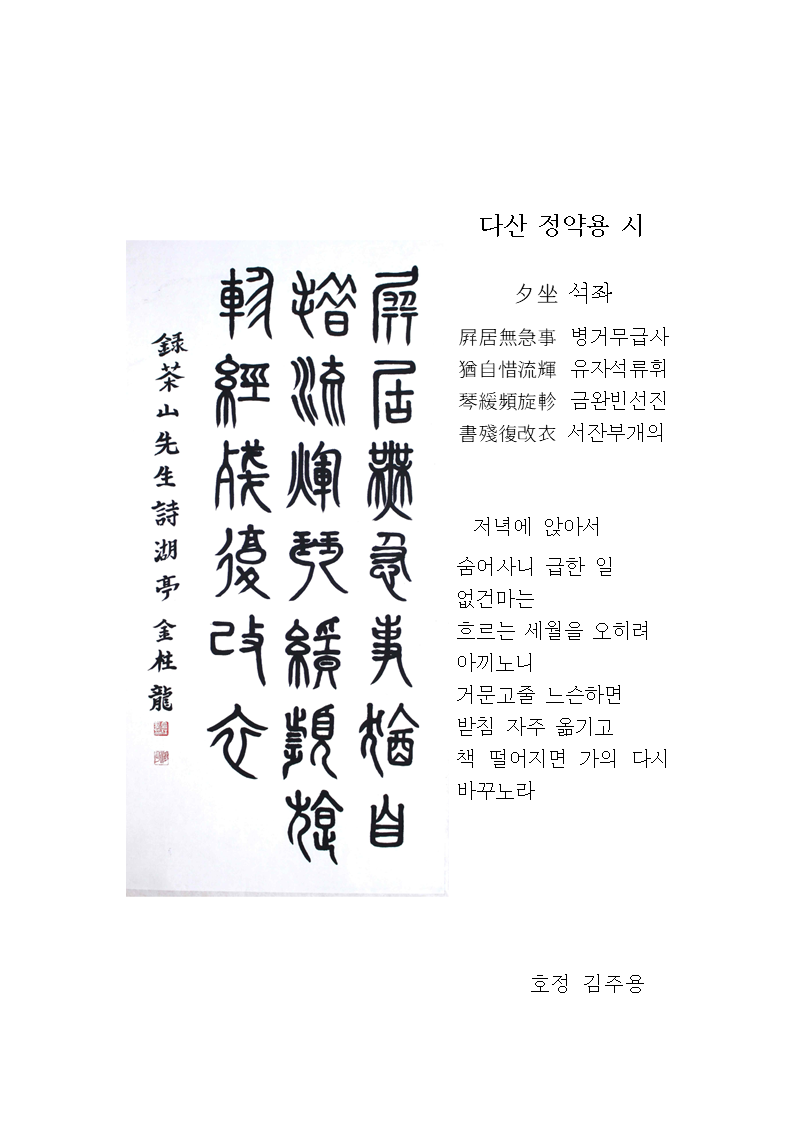 屛居無急事猶自
惜流輝琴緩頻旋
軫經殘復改衣
錄茶山先生詩湖亭 金柱龍
다산 정약용 시
夕坐 석좌
屛居無急事 병거무급사
猶自惜流輝 유자석류휘
琴緩頻旋軫 금완빈선진
書殘復改衣 서잔부개의
저녁에 앉아서
숨어사니 급한 일
없건마는
흐르는 세월을 오히려
아끼노니
거문고줄 느슨하면
받침 자주 옮기고
책 떨어지면 가의 다시
바꾸노라
호정 김주용